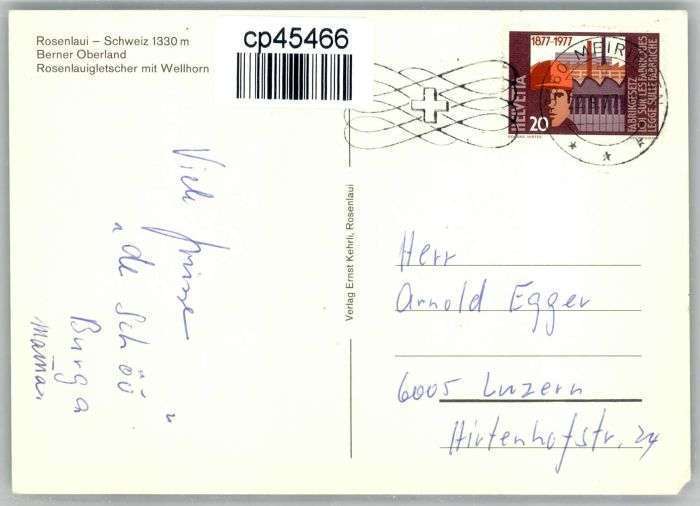 Rosenlaui – Schweiz 1330 m
Berner Oberland
Rosenlauigletscher mit Wellhorn
cp45466
1877-1977
HELVETIA
20
FABRIKGESETZ
LOI SUR LES FABRIQUES
LEGGE SULLE FABBRICHE
MEIR
Viele Grüsse
"de Schöö"
Burga
Mama
Verlag Ernst Kehrli, Rosenlaui
Herr
Arnold Egger
6005 Luzern
Hirtenhofstr. 24